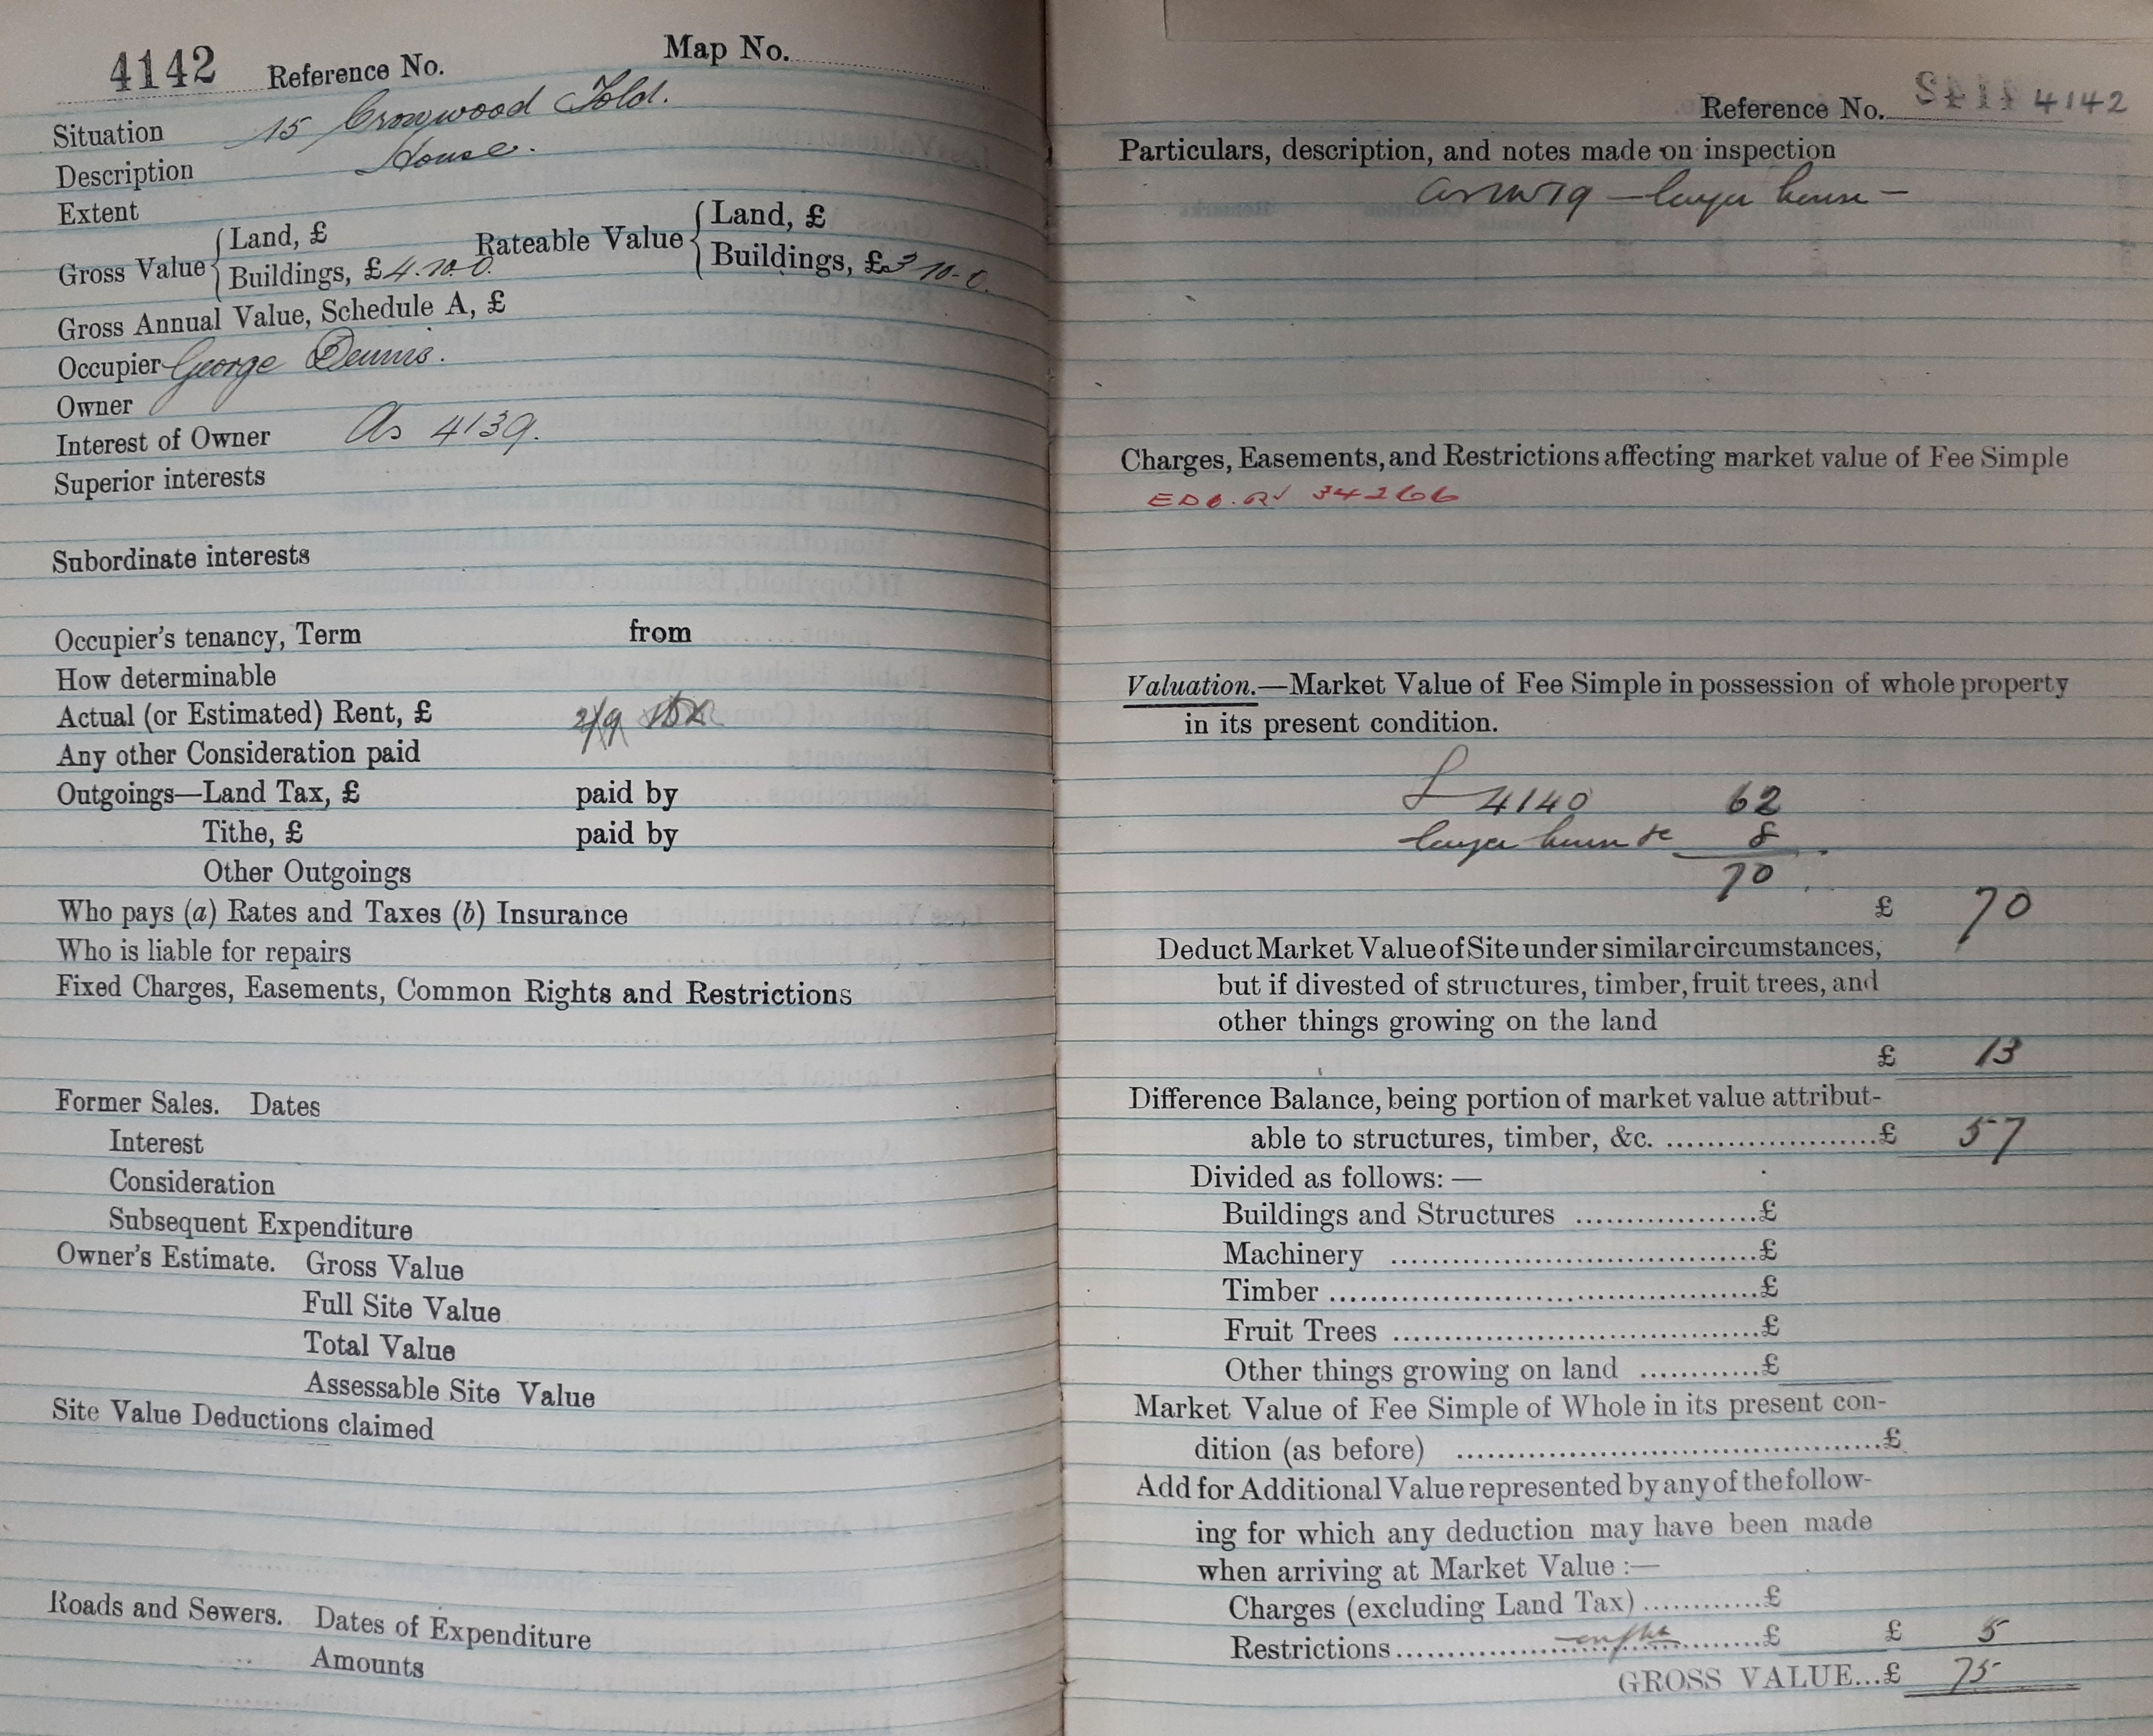 4142 Reference No. Map No.
Situation 15 Crowwood Fold.
Description House.
Extent
Gross Value { Land, £ Rateable Value { Land, £
Buildings, £ 4.10.0. Buildings, £ 3 10-0.
Gross Annual Value, Schedule A, £
Occupier George Dennis.
Owner
Interest of Owner As 4139.
Superior interests
Subordinate interests
Occupier's tenancy, Term from
How determinable
Actual (or Estimated) Rent, £ 2/9
Any other Consideration paid
Outgoings—Land Tax, £ paid by
Tithe, £ paid by
Other Outgoings
Who pays (a) Rates and Taxes (b) Insurance
Who is liable for repairs
Fixed Charges, Easements, Common Rights and Restrictions
Former Sales. Dates
Interest
Consideration
Subsequent Expenditure
Owner's Estimate. Gross Value
Full Site Value
Total Value
Assessable Site Value
Site Value Deductions claimed
Roads and Sewers. Dates of Expenditure
Amounts
Reference No. 4142
Particulars, description, and notes made on inspection
— larger house —
Charges, Easements, and Restrictions affecting market value of Fee Simple
34266
Valuation.—Market Value of Fee Simple in possession of whole property
in its present condition.
£ 4140 62
larger house 8
70
£ 70
Deduct Market Value of Site under similar circumstances,
but if divested of structures, timber, fruit trees, and
other things growing on the land
£ 13
Difference Balance, being portion of market value attribut-
able to structures, timber, &c. ....................£ 57
Divided as follows: —
Buildings and Structures ..................£
Machinery ....................................£
Timber ..........................................£
Fruit Trees ....................................£
Other things growing on land ............£
Market Value of Fee Simple of Whole in its present con-
dition (as before) ..........................................£
Add for Additional Value represented by any of the follow-
ing for which any deduction may have been made
when arriving at Market Value :—
Charges (excluding Land Tax) ............£
Restrictions ....................................£ £ 5
GROSS VALUE...£ 75